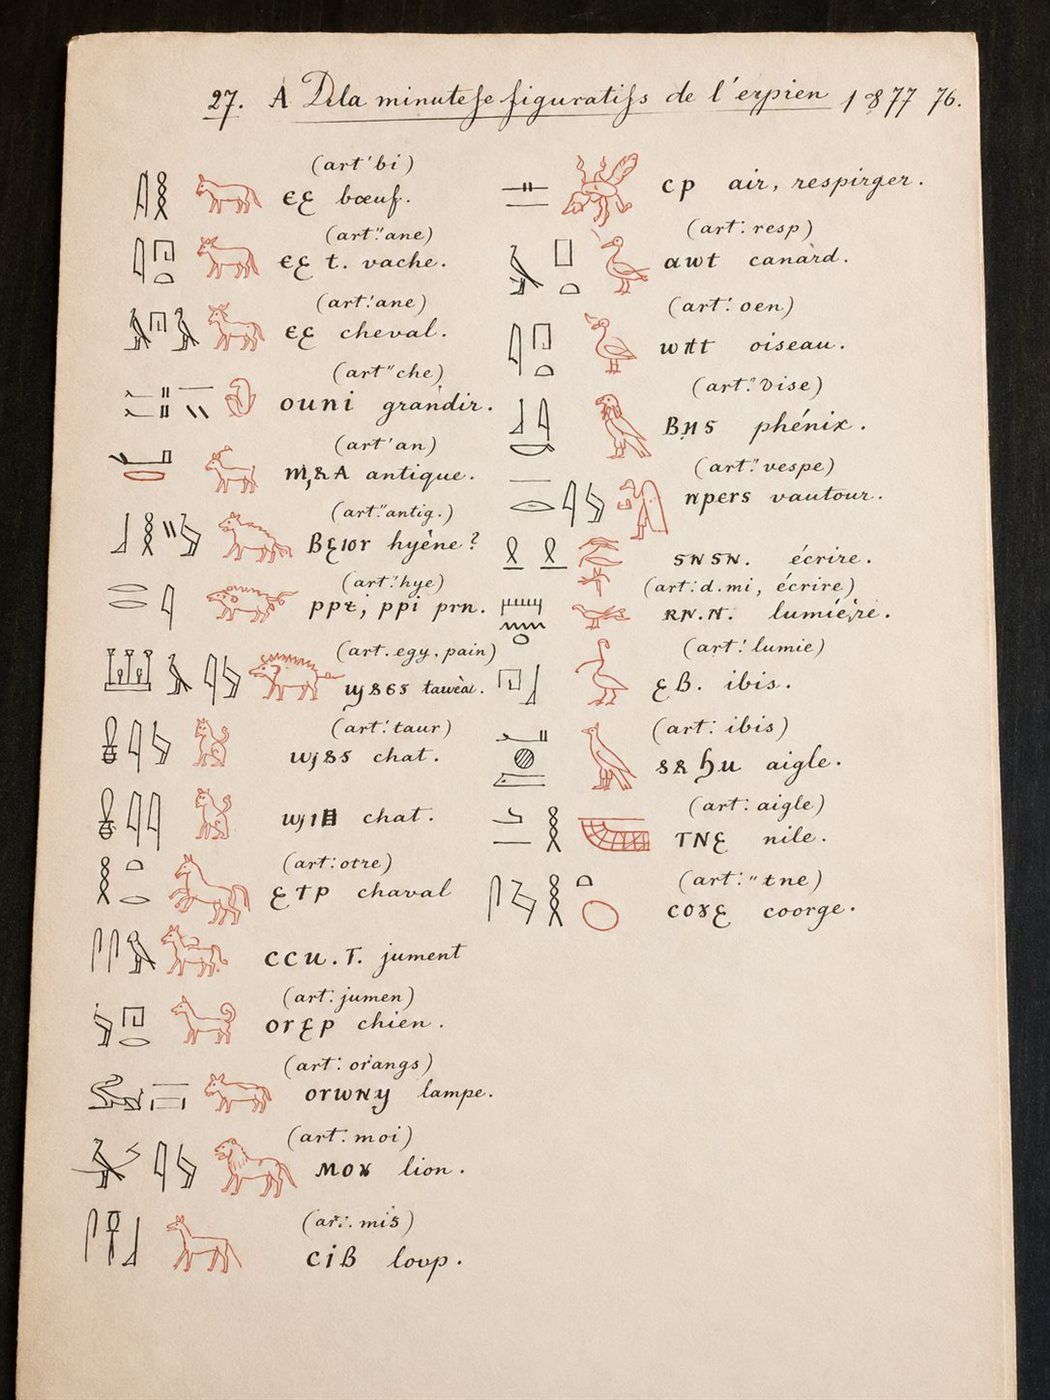 27. A Dela minutese figuratifs de l'erpien 1877 76.
(art'bi)
ⲉⲝ bœuf.
(art."ane)
ⲉⲝ t. vache.
(art'ane)
ⲉⲝ cheval.
(art"che)
ouni grandir.
(art'an)
antique.
(art."antig.)
hyène?
(art'.hye)
ppi prn.
(art.egy.pain)
(art'.taur)
chat.
chat.
(art:otre)
ⲝⲧⲣ chaval
ccu.T. jument
(art:jumen)
orⲝp chien.
(art: orangs)
lampe.
(art: moi)
lion.
(art:. mis)
CiB loup.
cp air, respirger.
(art: resp)
awt canàrd.
(art: oen)
oiseau.
(art." vise)
phénix.
(art." vespe)
npers vautour.
SNSN. écrire.
(art:d.mi, écrire)
RN.N. lumiéire.
(art: lumie)
ⲝB. ibis.
(art: ibis)
aigle.
(art: aigle)
TNⲝ nile.
(art:" tne)
coorge.